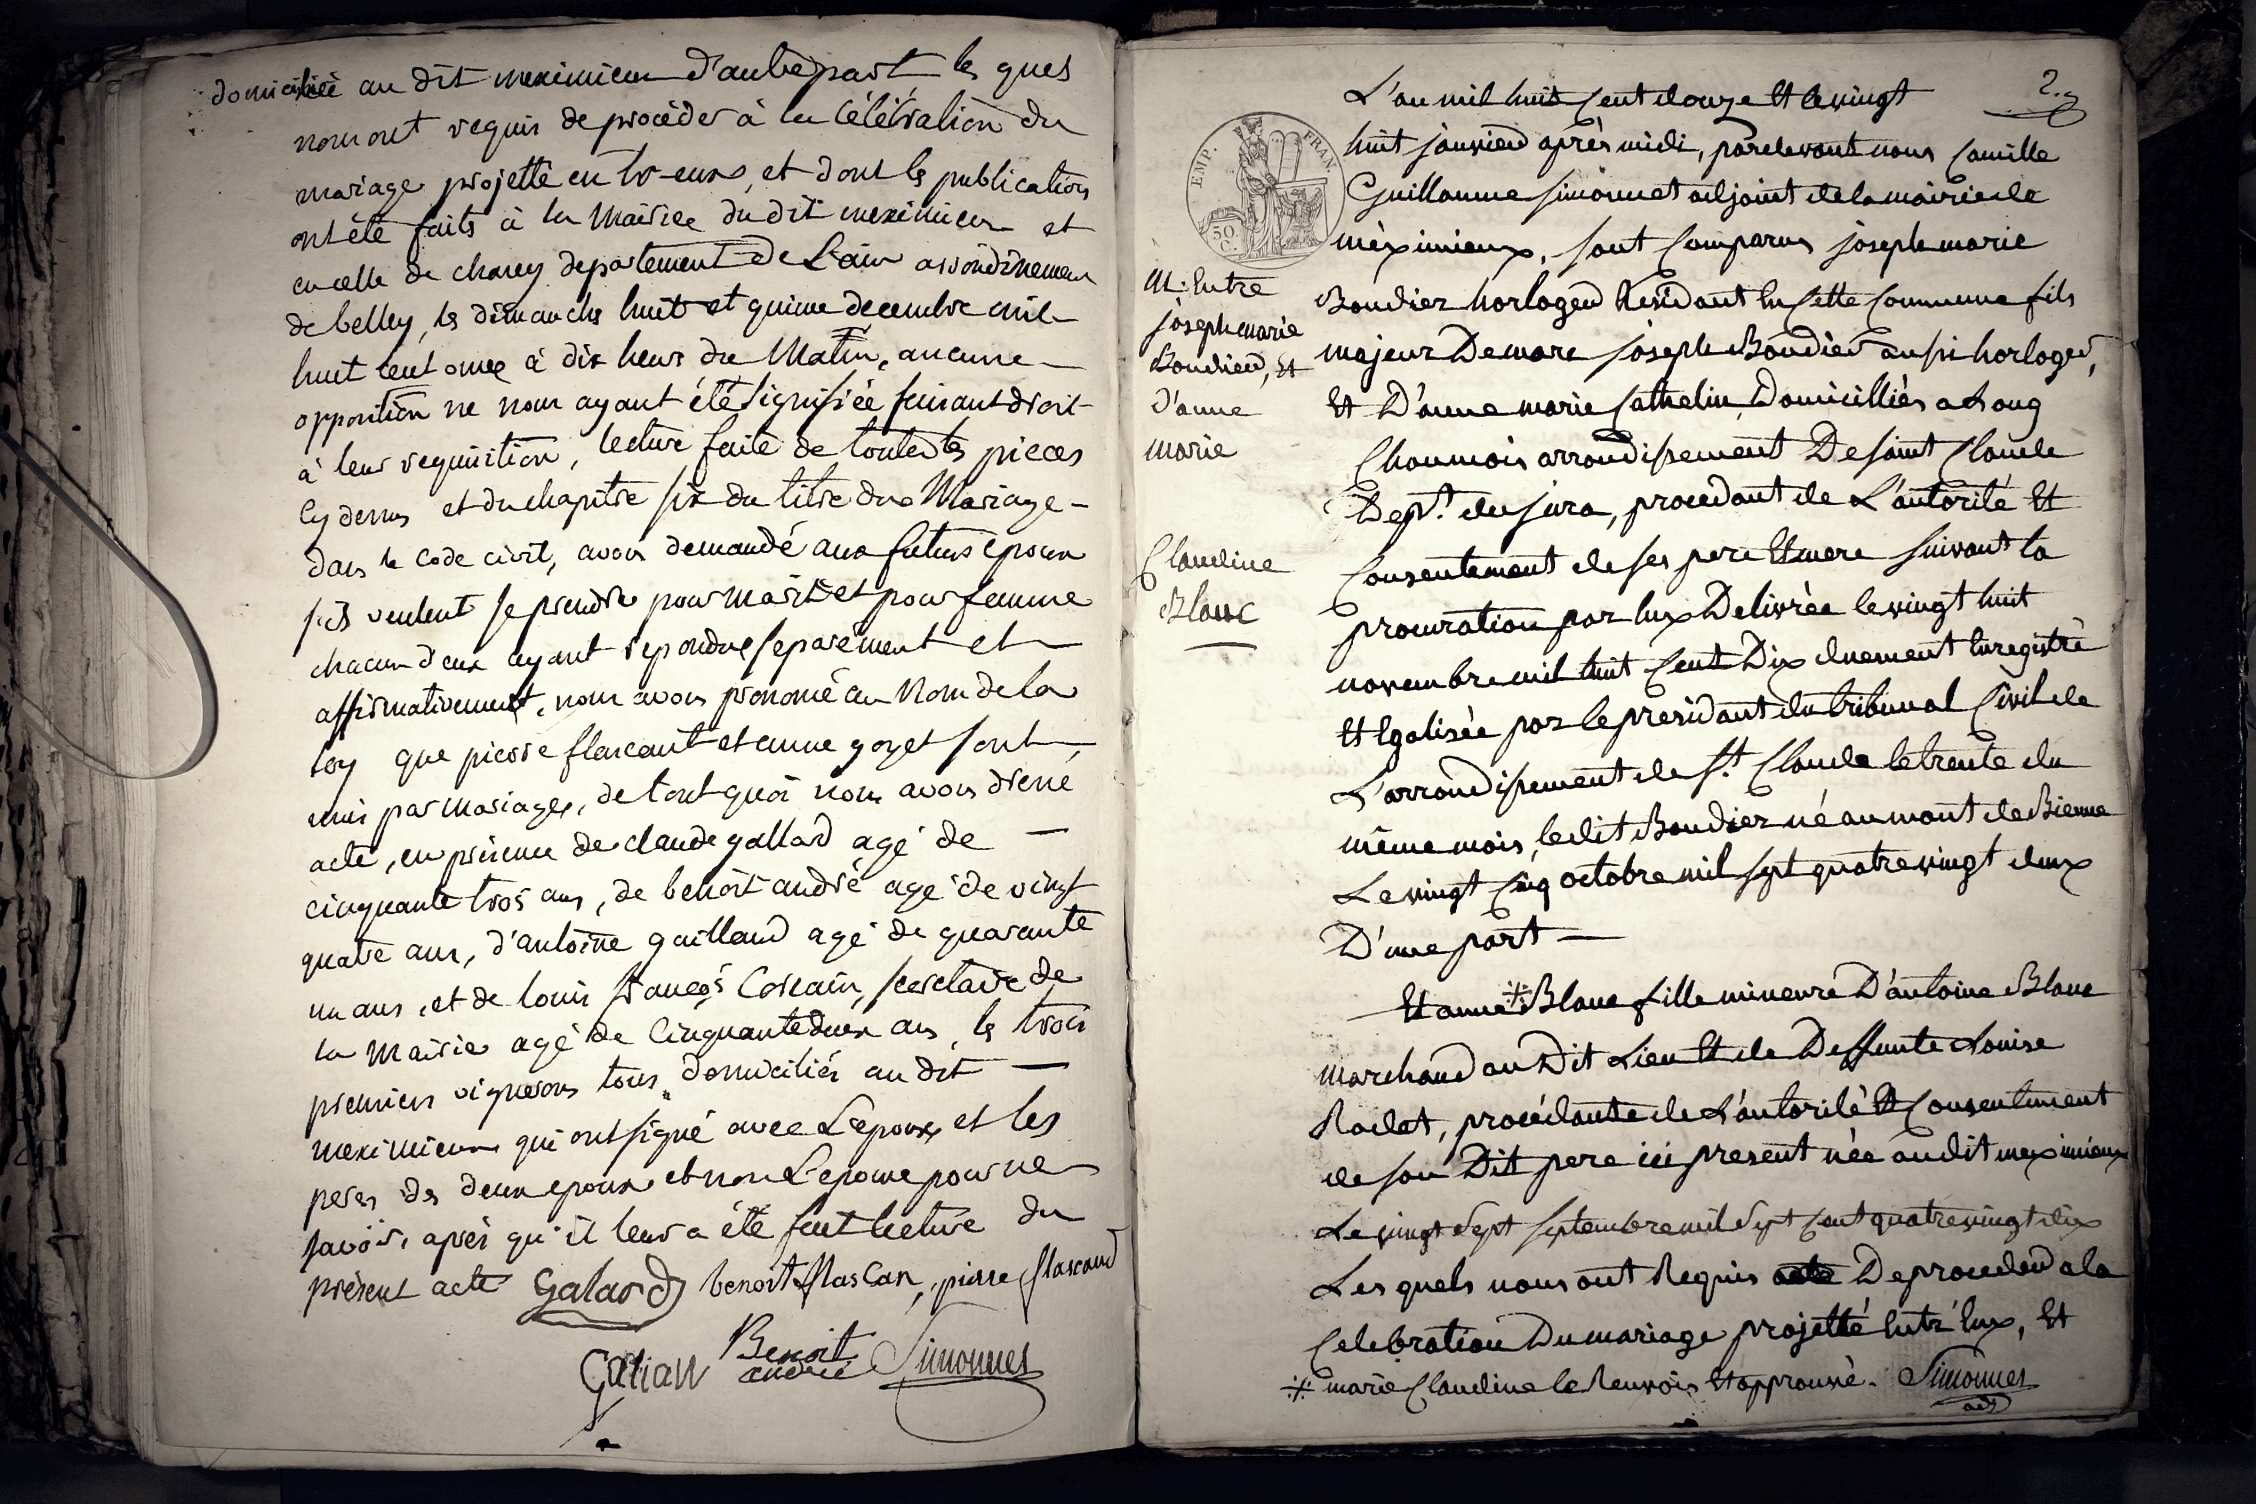 domiciliée au dit meximieux d'autre part les quels
nous ont requis de procéder à la célébration du
mariage projetté entr-eux, et dont les publications
ont été faits à la Mairiee du dit meximieux et
en celle de charey departement De L'ain arrondinemen
de belley, les dimanches huit et quinze decembre mil
huit cent onze à dix heurs du Matin, aucune
opposition ne nous ayant été signifiée faisant droit
à leur requisition, lecture faite de toutes les pieces
cy dessus et du chapitre six du titre du Mariage -
dans le Code civil, avons demandé aux futurs epoux
s'ils veulent se prendre pour mari et pour femme
chacun d'eux ayant repondu separément et
affirmativement, nous avons prononcé au Nom de la
loy que pierre flascaut et anne goyet sont
unis par mariage, de tout quoi nous avons dressé
acte, en présence de claude gallard agé de —
cinquante trois ans, de benoit andré agé de vingt
quatre ans, d'antoine gaillard agé de quarante
un ans, et de louis françois Corcain, secretaire de
la Mairie agé de Cinquante deux ans, les trois
premiers vignerons tous domiciliés au dit —
meximieux qui ont signé avec L'epoux et les
peres des deux epoux et non L'epouse pour ne
savoir, après qu'il leur a été fait lecture du
présent acte Galard benoit flasCan, pierre flascaud
Benoit
andré Simonnet
2.
EMP. FRAN
50.
C.
L'an mil huit Cent douze Et le vingt
huit janvier après midi, pardevant nous Camille
Guillaume Simonnet adjoint de la mairie de
méximieux, sont Comparus joseph marie
Boudier horloger Residant En Cette Commune fils
majeur De marc joseph Boudier aussi horloger,
Et D'anne marie Cathelin, Domicilliés a Long
Chaumois arrondissement De saint Claude
Dept. du jura, procedant de L'autorité Et
Consentement de ses pere Et mere suivant la
procuration par Eux Delivrée le vingt huit
novembre mil huit Cent Dix duement Enregistré
Et Egalisée par le president du tribunal Civil de
L'arrondissement de St. Claude le trente du
même mois, ledit Boudier né au mont de Bienne
Le vingt Cinq octobre mil sept quatre vingt deux
D'une part —
Et anne ⁜ Blanc fille mineure D'antoine Blanc
marchand au Dit Lieu Et de Deffunte Louise
Rodet, procédante de L'autorité Et Consentiment
de son Dit pere ici present née audit meximieux
Le vingt Sept septembre mil Sept Cent quatre vingt dix
Les quels nous ont Requis De proceder a la
Celebration Du mariage projetté Entr'Eux, Et
⁜ marie Claudine le Renvois Et approuvé. Simonnet
adj
M. Entre
joseph marie
Boudier, Et
D'anne
marie
Claudine
Blanc